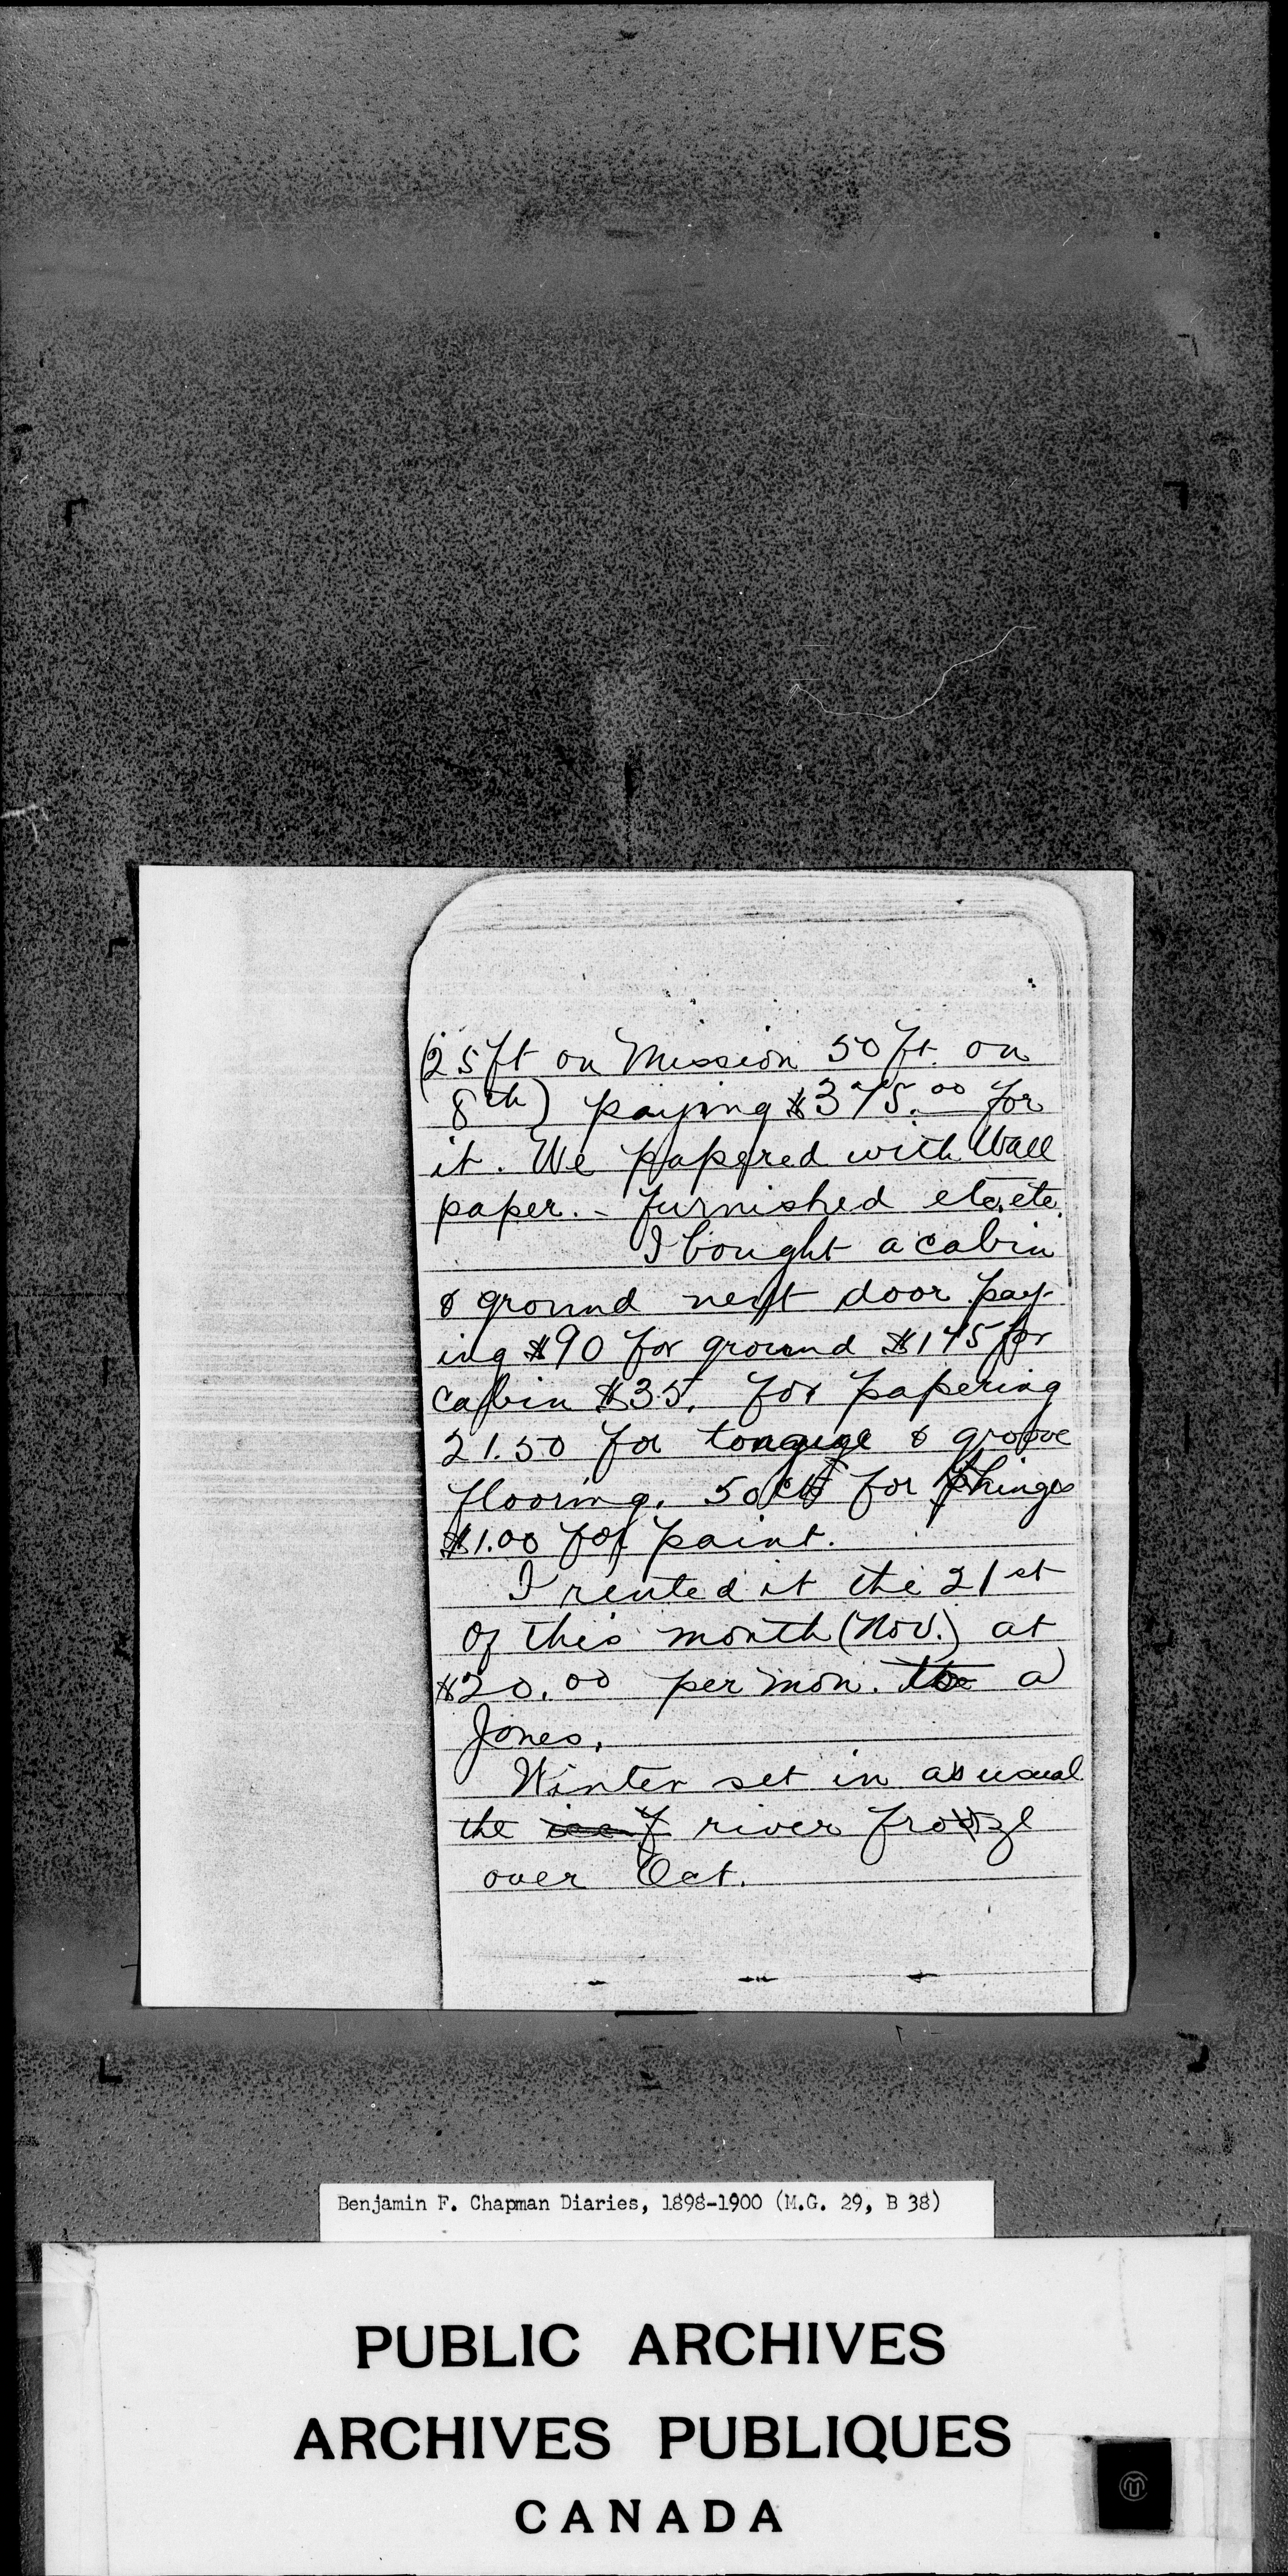 (25 ft on Mission 50 ft. on
8th) paying $375.00 for
it. We papered with Wall
paper. - furnished etc. etc.
I bought a cabin
& ground next door pay-
ing $90 for ground $175 for
cabin $35. for papering
21.50 for tongue & groove
flooring. 50 cts for hinges
$1.00 for paint.
I rented it the 21st
of this month (Nov.) at
$20.00 per mon. to a
Jones.
Winter set in as usual
the river froze
over Oct.
Benjamin F. Chapman Diaries, 1898-1900 (M.G. 29, B 38)
PUBLIC ARCHIVES
ARCHIVES PUBLIQUES
CANADA